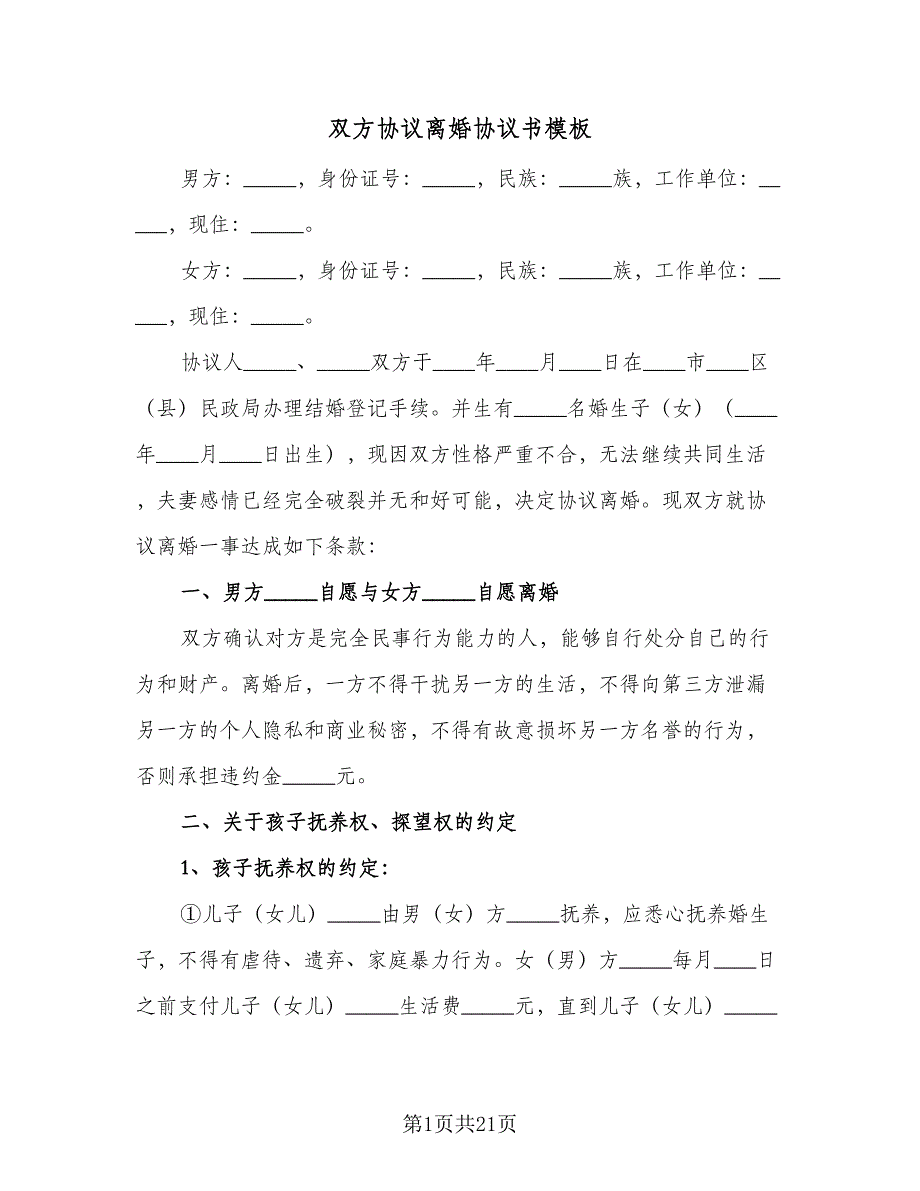 双方协议离婚协议书模板
男方：_____，身份证号：_____，民族：_____族，工作单位：__
___，现住：_____。
女方：_____，身份证号：_____，民族：_____族，工作单位：__
___，现住：_____。
协议人_____、_____双方于____年____月____日在____市____区
（县）民政局办理结婚登记手续。并生有_____名婚生子（女）（____
年____月____日出生），现因双方性格严重不合，无法继续共同生活
，夫妻感情已经完全破裂并无和好可能，决定协议离婚。现双方就协
议离婚一事达成如下条款：
一、男方_____自愿与女方_____自愿离婚
双方确认对方是完全民事行为能力的人，能够自行处分自己的行
为和财产。离婚后，一方不得干扰另一方的生活，不得向第三方泄漏
另一方的个人隐私和商业秘密，不得有故意损坏另一方名誉的行为，
否则承担违约金_____元。
二、关于孩子抚养权、探望权的约定
1、孩子抚养权的约定：
①儿子（女儿）_____由男（女）方_____抚养，应悉心抚养婚生
子，不得有虐待、遗弃、家庭暴力行为。女（男）方_____每月____日
之前支付儿子（女儿）_____生活费_____元，直到儿子（女儿）_____
第1页共21页